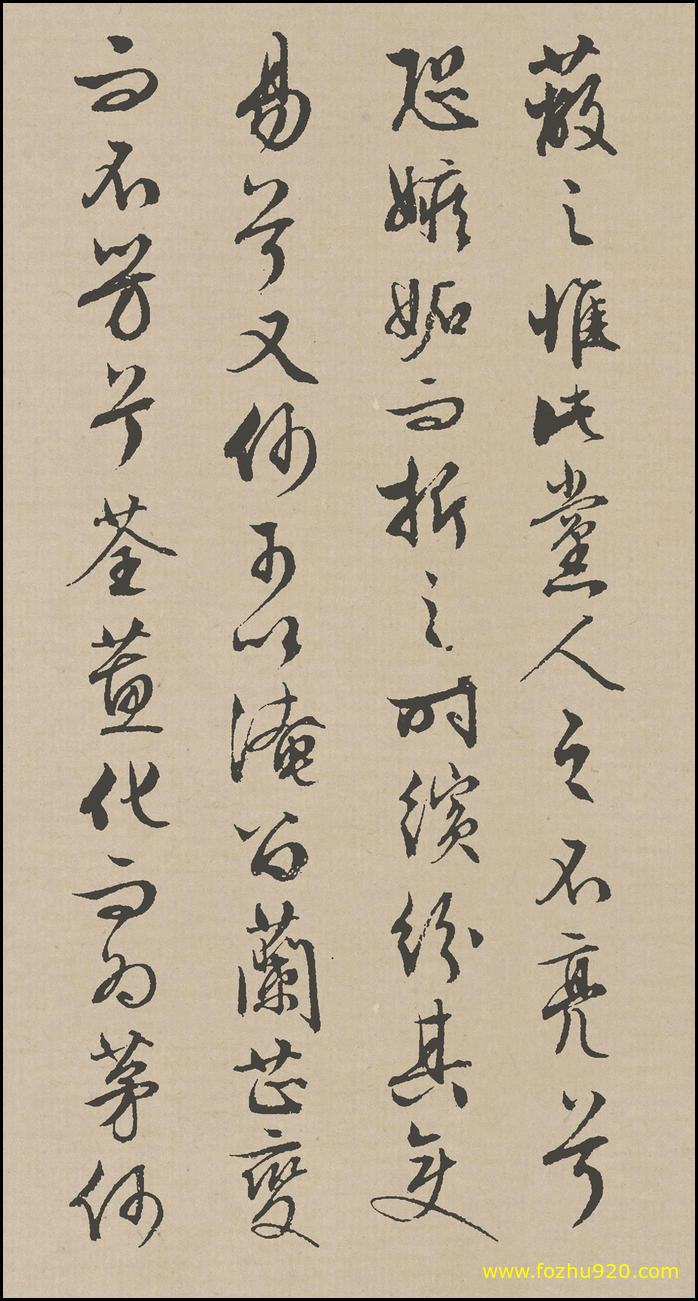 蔽之惟此黨人之不亮兮
恐嫉妬而折之時繽紛其變
易兮又何可以淹留蘭芷變
而不芳兮荃蕙化而為茅何
www.fozhu920.com